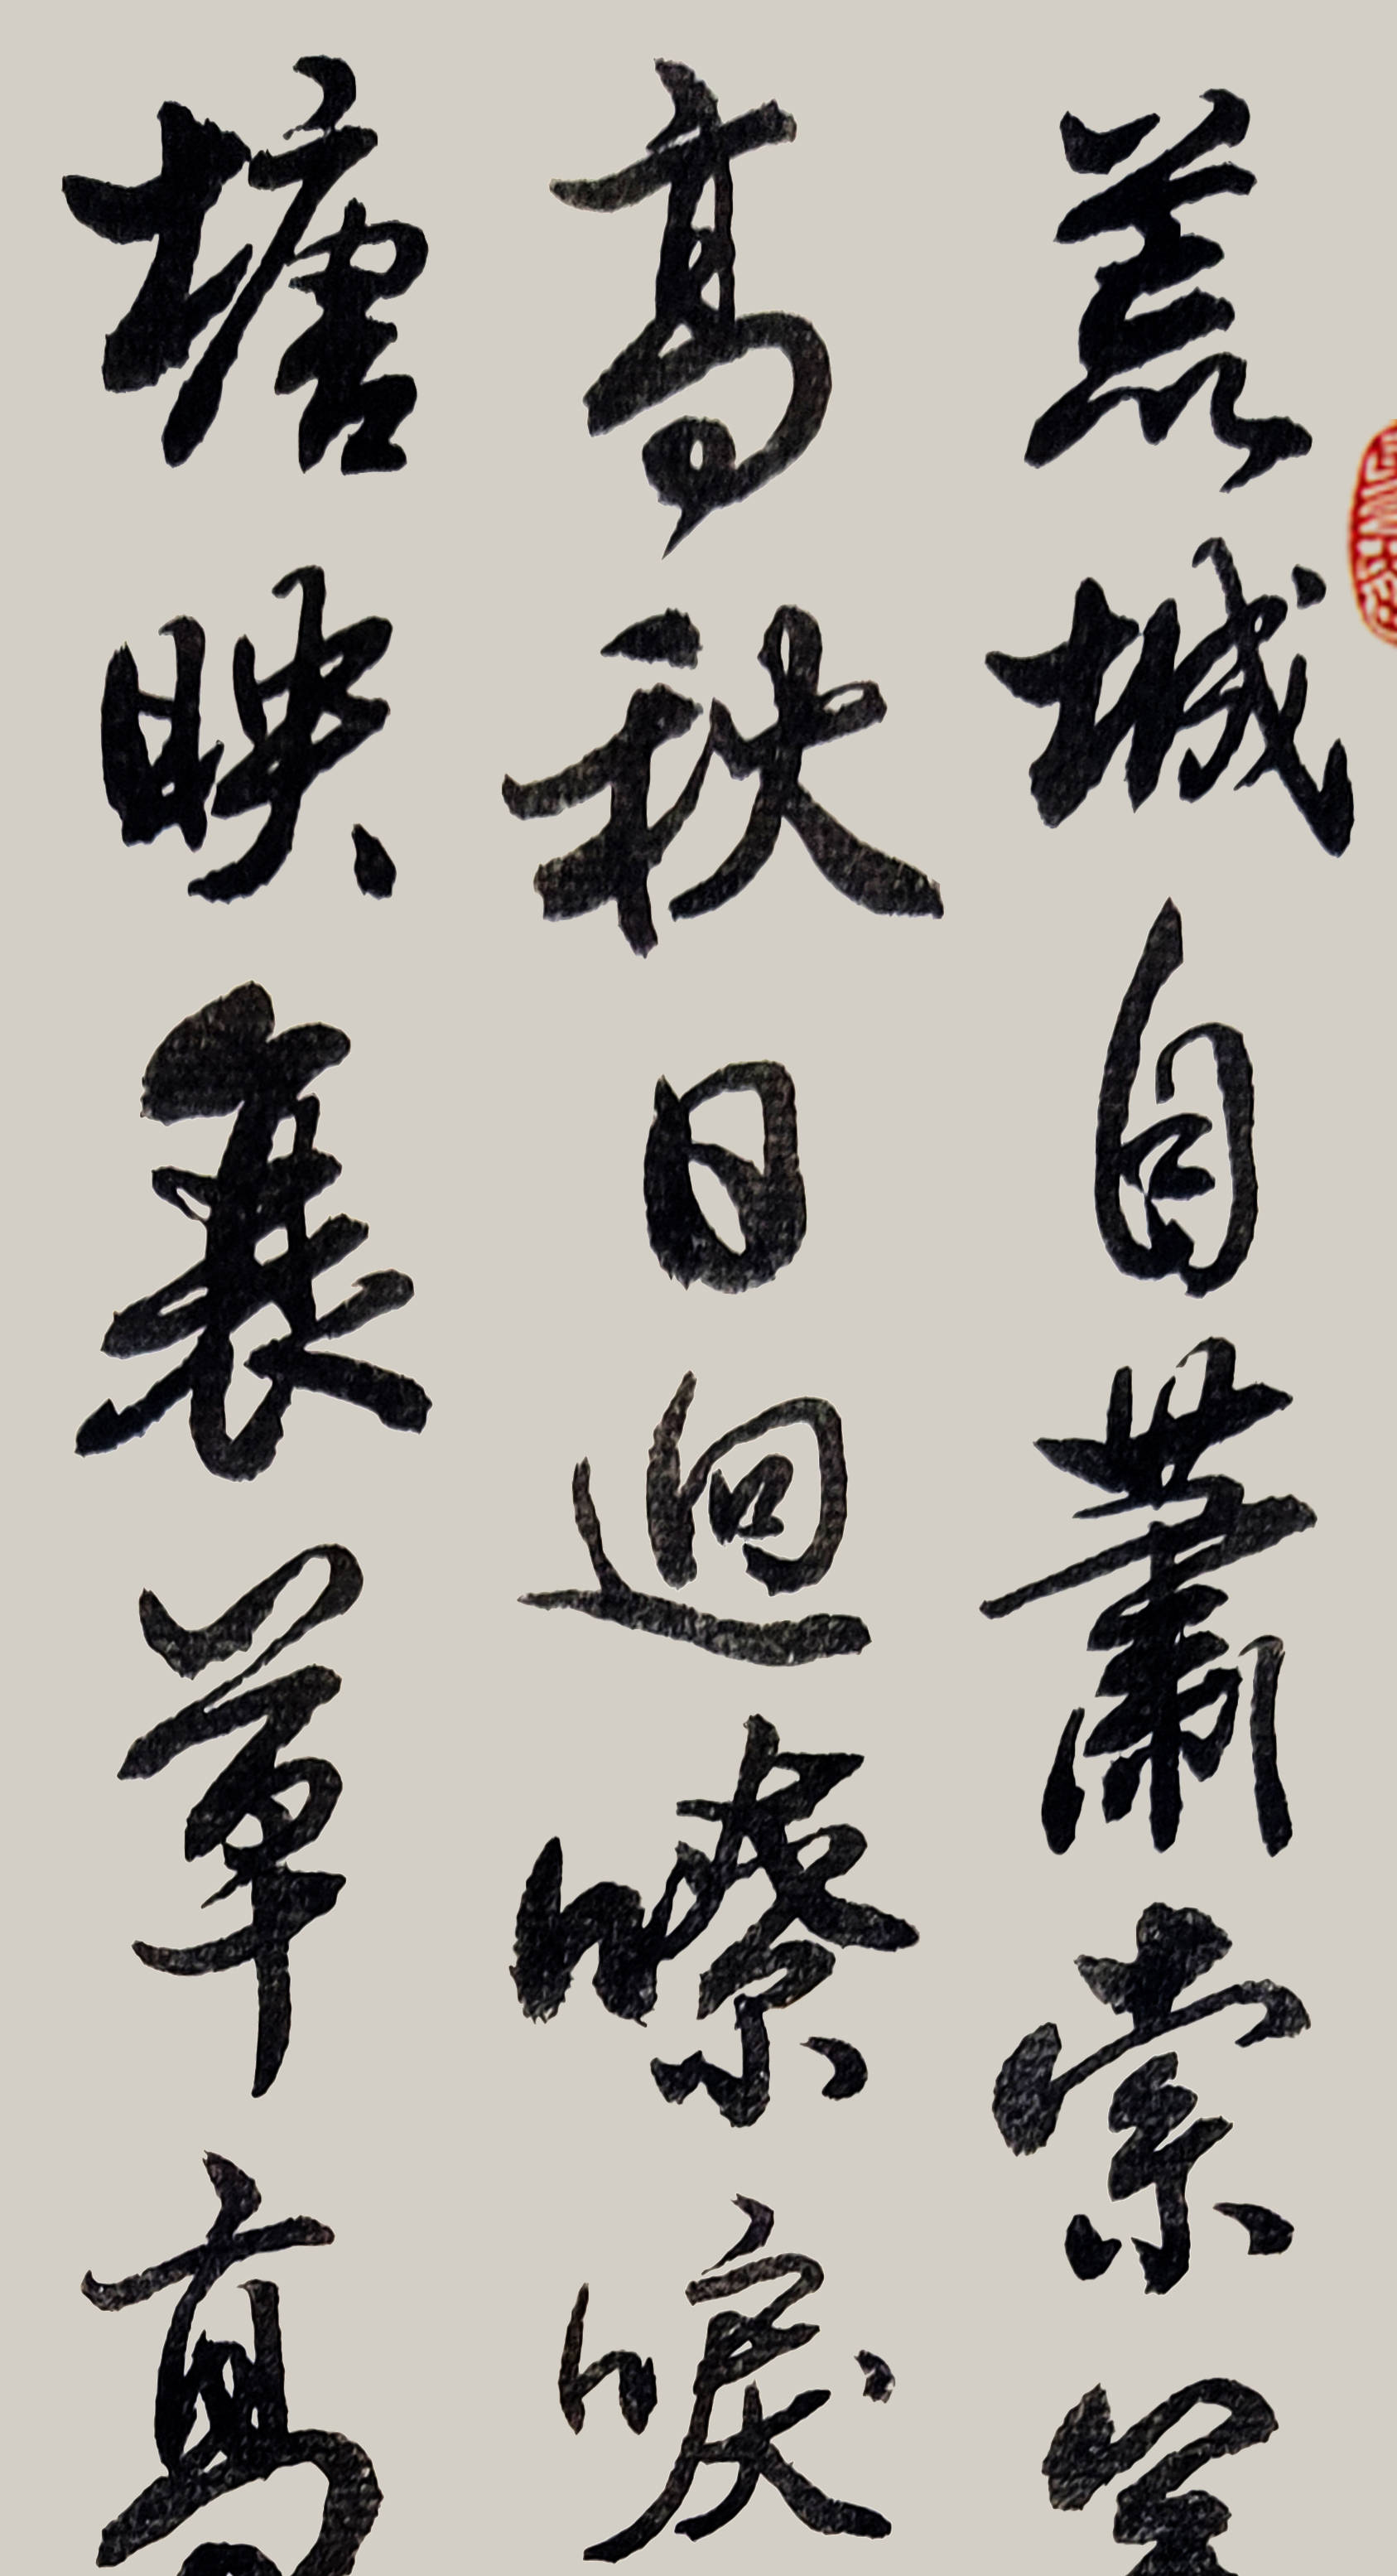 荒城自蕭索
高秋日迥嘹唳
塘映衰草高